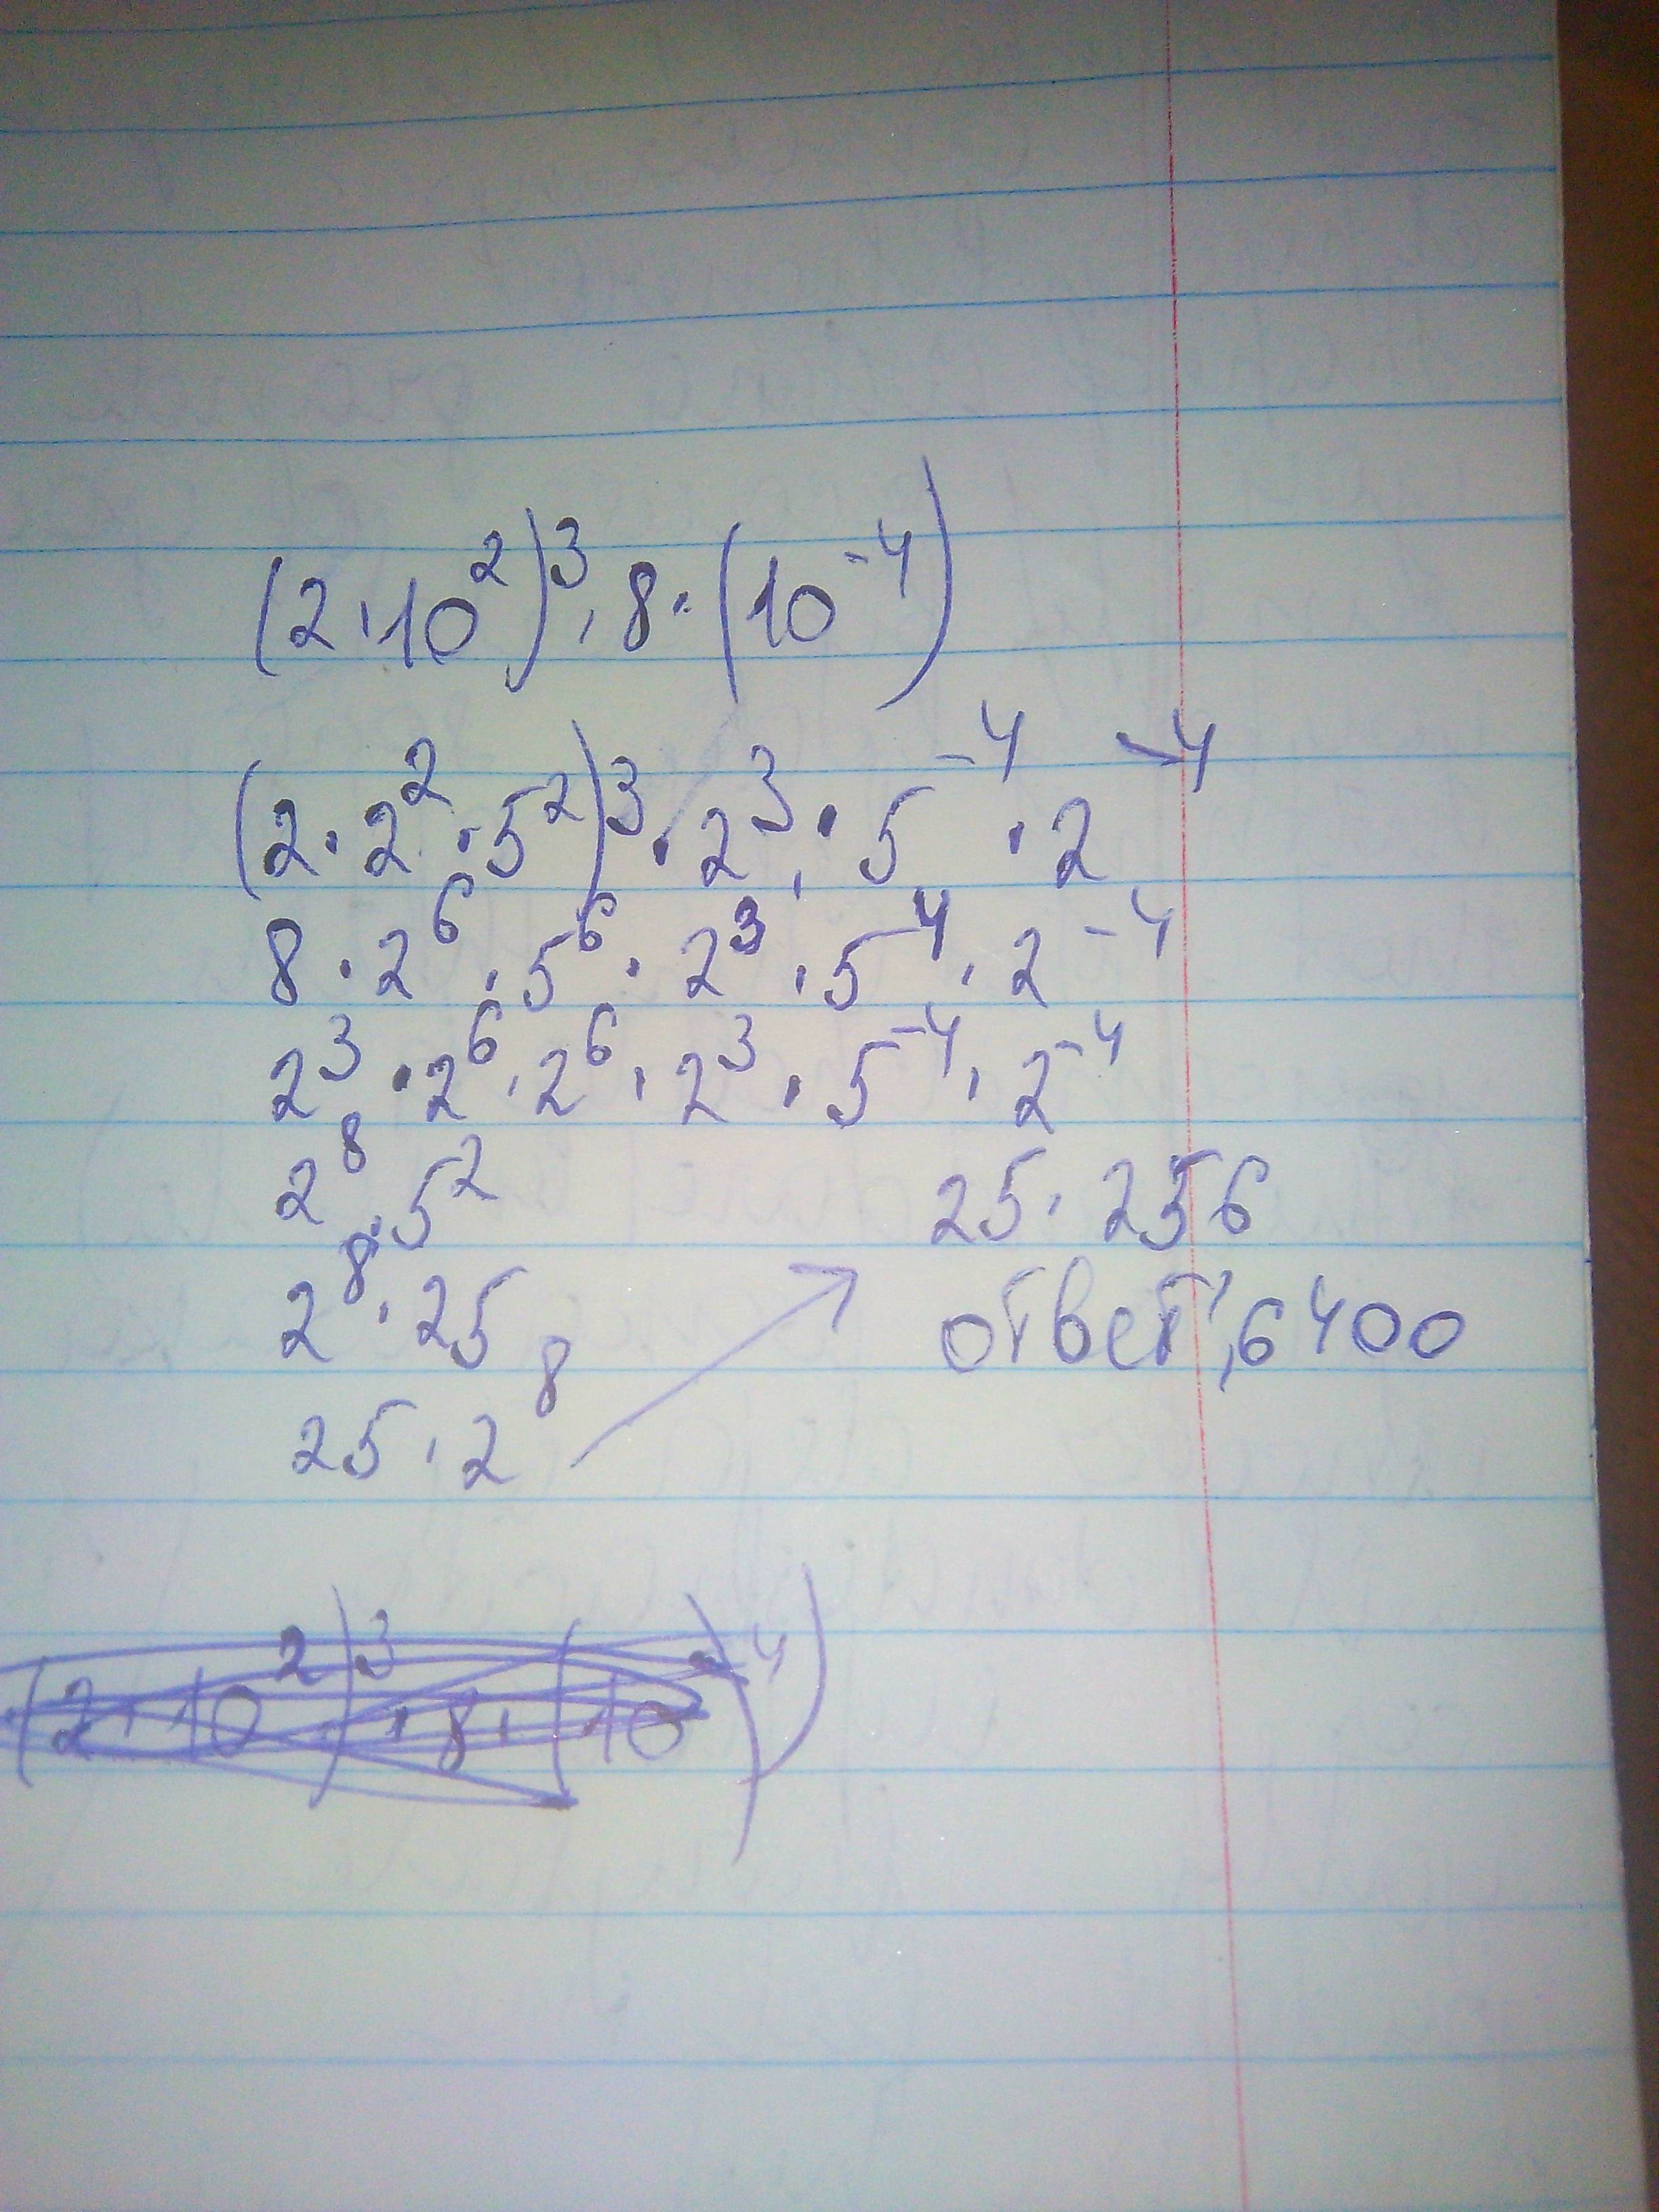 (2·10²)³·8·(10⁻⁴)
(2·2²·5²)³·2³·5⁻⁴·2⁻⁴
8·2⁶·5⁶·2³·5⁻⁴·2⁻⁴
2³·2⁶·2⁶·2³·5⁻⁴·2⁻⁴
2⁸·5²
2⁸·25
25·2⁸
25·256
ответ: 6400
(2·10²)³·8·(10⁻⁴)